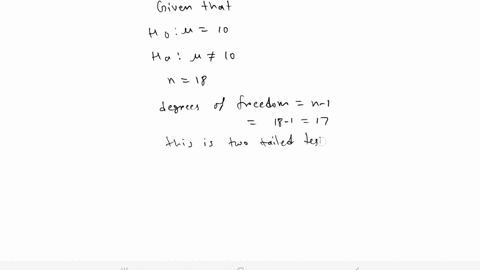 Given that
H0: μ = 10
Ha: μ ≠ 10
n = 18
degrees of freedom = n-1
= 18-1 = 17
this is two tailed tes